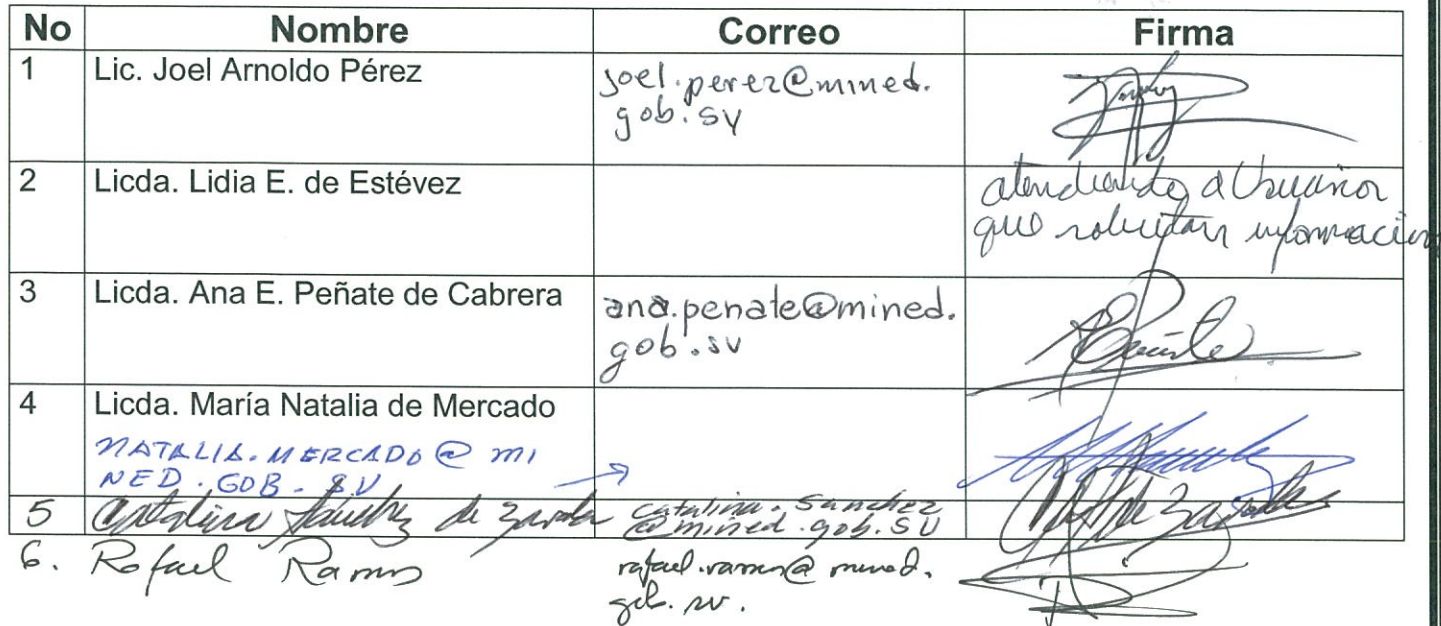 No Nombre Correo Firma
1 Lic. Joel Arnoldo Pérez joel.perez@mined.
gob.sv
2 Licda. Lidia E. de Estévez atendiendo a Usuarios
que solicitan información
3 Licda. Ana E. Peñate de Cabrera ana.penate@mined.
gob.sv
4 Licda. María Natalia de Mercado
NATALIA.MERCADO@MI
NED.GOB.SV
5 Catalina Sánchez de Zavala catalina.sanchez
@mined.gob.sv
6. Rafael Ramos rafael.ramos@mined.
gob.sv.